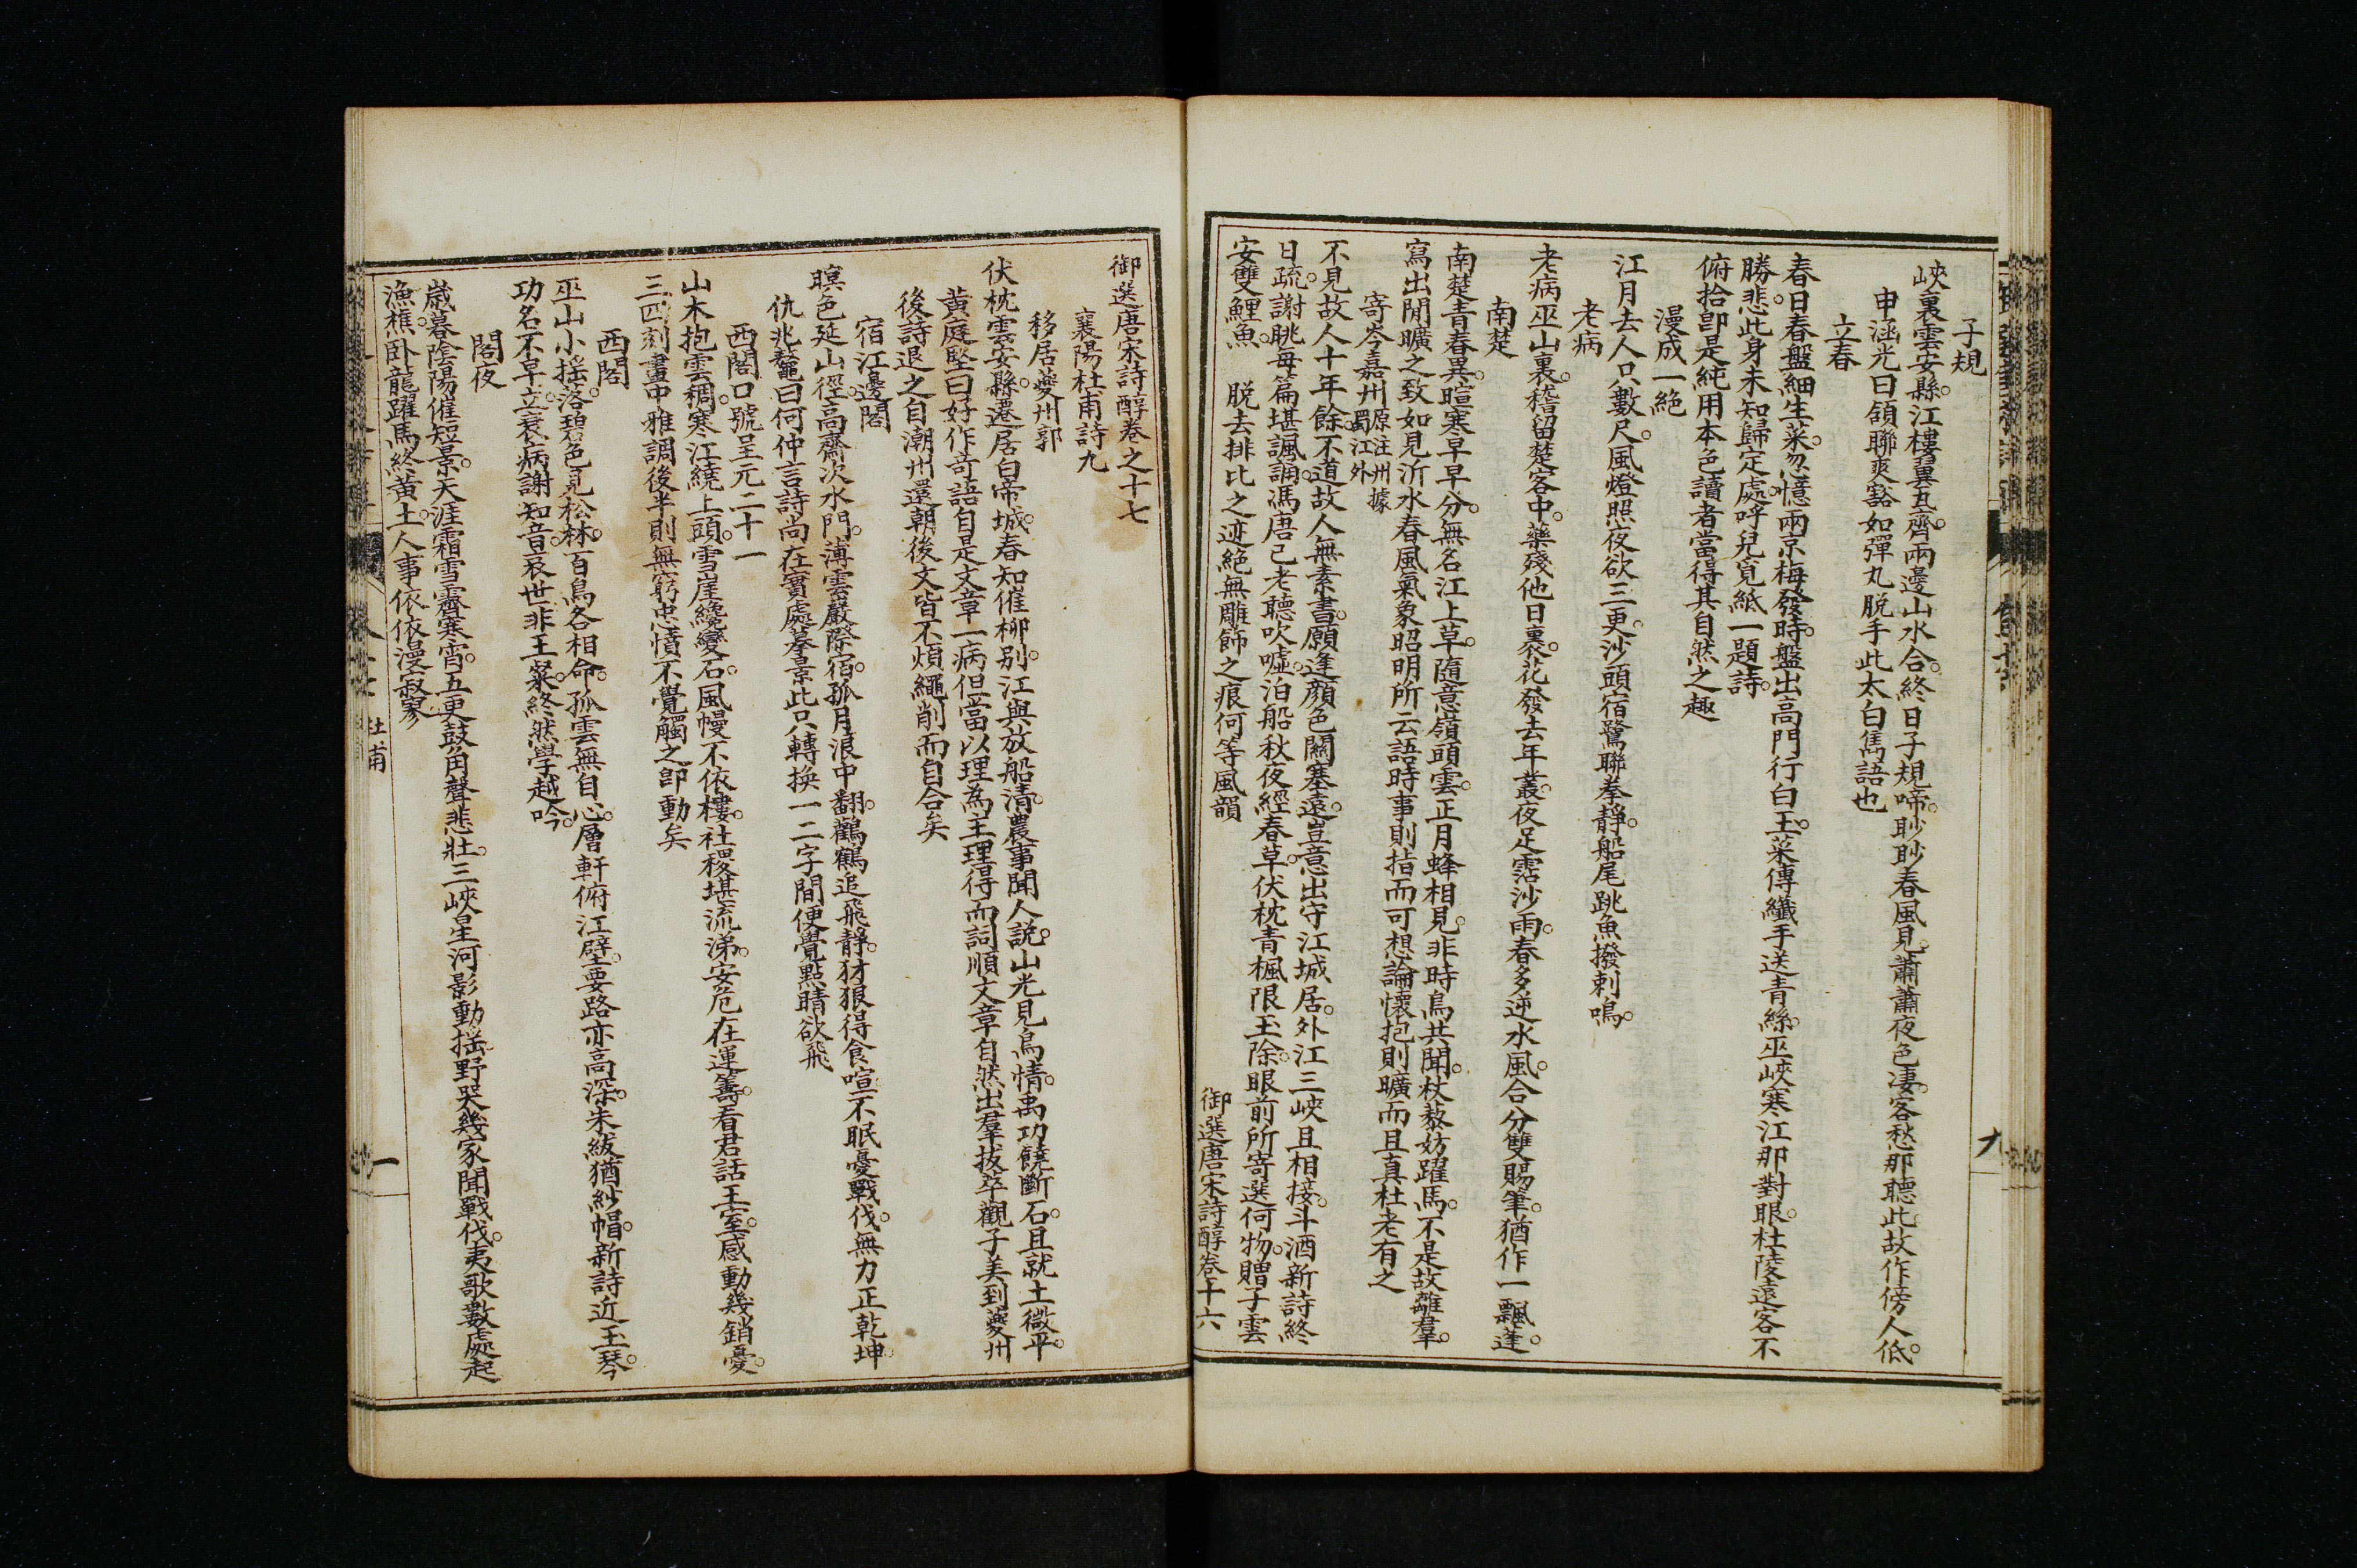 子規
峽裏雲安縣。江樓翼瓦齊。兩邊山水合。終日子規啼。眇眇春風見。蕭蕭夜色淒。客愁那聽此。故作傍人低。
申涵光曰頷聯爽豁如彈丸脫手此太白雋語也
立春
春日春盤細生菜。忽憶兩京梅發時。盤出高門行白玉。菜傳纖手送青絲。巫峽寒江那對眼。杜陵遠客不
勝悲。此身未知歸定處。呼兒覓紙一題詩。
俯拾卽是純用本色讀者當得其自然之趣
漫成一絕
江月去人只數尺。風燈照夜欲三更。沙頭宿鷺聯拳靜。船尾跳魚撥剌鳴。
老病
老病巫山裏。稽留楚客中。藥殘他日裹。花發去年叢。夜足霑沙雨。春多逆水風。合分雙賜筆。猶作一飄蓬。
南楚
南楚青春異。暄寒早早分。無名江上草。隨意嶺頭雲。正月蜂相見。非時鳥共聞。杖藜妨躍馬。不是故離羣。
寫出閒曠之致如見沂水春風氣象昭明所云語時事則指而可想論懷抱則曠而且真杜老有之
寄岑嘉州原注州據蜀江外
不見故人十年餘。不道故人無素書。願逢顏色關塞遠。豈意出守江城居。外江三峽且相接。斗酒新詩終
日疏。謝眺每篇堪諷誦。馮唐已老聽吹噓。泊船秋夜經春草。伏枕青楓限玉除。眼前所寄選何物。贈子雲
安雙鯉魚。
脫去排比之迹絕無雕飾之痕何等風韻
御選唐宋詩醇卷十六
九
御選唐宋詩醇卷之十七
襄陽杜甫詩九
移居夔州郭
伏枕雲安縣。遷居白帝城。春知催柳別。江與放船清。農事聞人說。山光見鳥情。禹功饒斷石。且就土微平。
黃庭堅曰好作奇語自是文章一病但當以理為主理得而詞順文章自然出羣拔萃觀子美到夔州
後詩退之自潮州還朝後文皆不煩繩削而自合矣
宿江邊閣
暝色延山徑。高齋次水門。薄雲巖際宿。孤月浪中翻。鸛鶴追飛靜。豺狼得食喧。不眠憂戰伐。無力正乾坤。
仇兆鼇曰何仲言詩尚在實處摹景此只轉換一二字間便覺點睛欲飛
西閣口號呈元二十一
山木抱雲稠。寒江繞上頭。雪崖纔變石。風幔不依樓。社稷堪流涕。安危在運籌。看君話王室。感動幾銷憂。
三四刻畫中雅調後半則無窮忠憤不覺觸之卽動矣
西閣
巫山小搖落。碧色見松林。百鳥各相命。孤雲無自心。層軒俯江壁。要路亦高深。朱紱猶紗帽。新詩近玉琴。
功名不早立。衰病謝知音。哀世非王粲。終然學越吟。
閣夜
歲暮陰陽催短景。天涯霜雪霽寒宵。五更鼓角聲悲壯。三峽星河影動搖。野哭幾家聞戰伐。夷歌數處起
漁樵。臥龍躍馬終黃土。人事依依漫寂寥。
杜甫
一